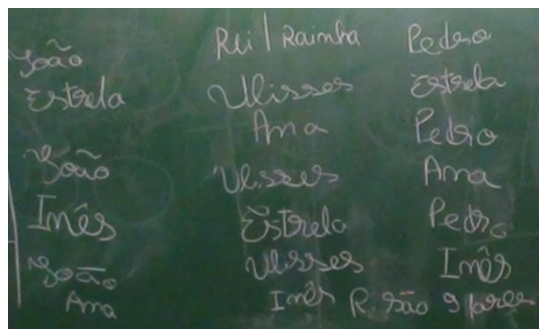 João
Estrela
João
Inês
João
Ana
Rei | Rainha
Ulisses
Ana
Ulisses
Estrela
Ulisses
Inês
Pedro
Estrela
Pedro
Ana
Pedro
Inês
R. São 9 pares